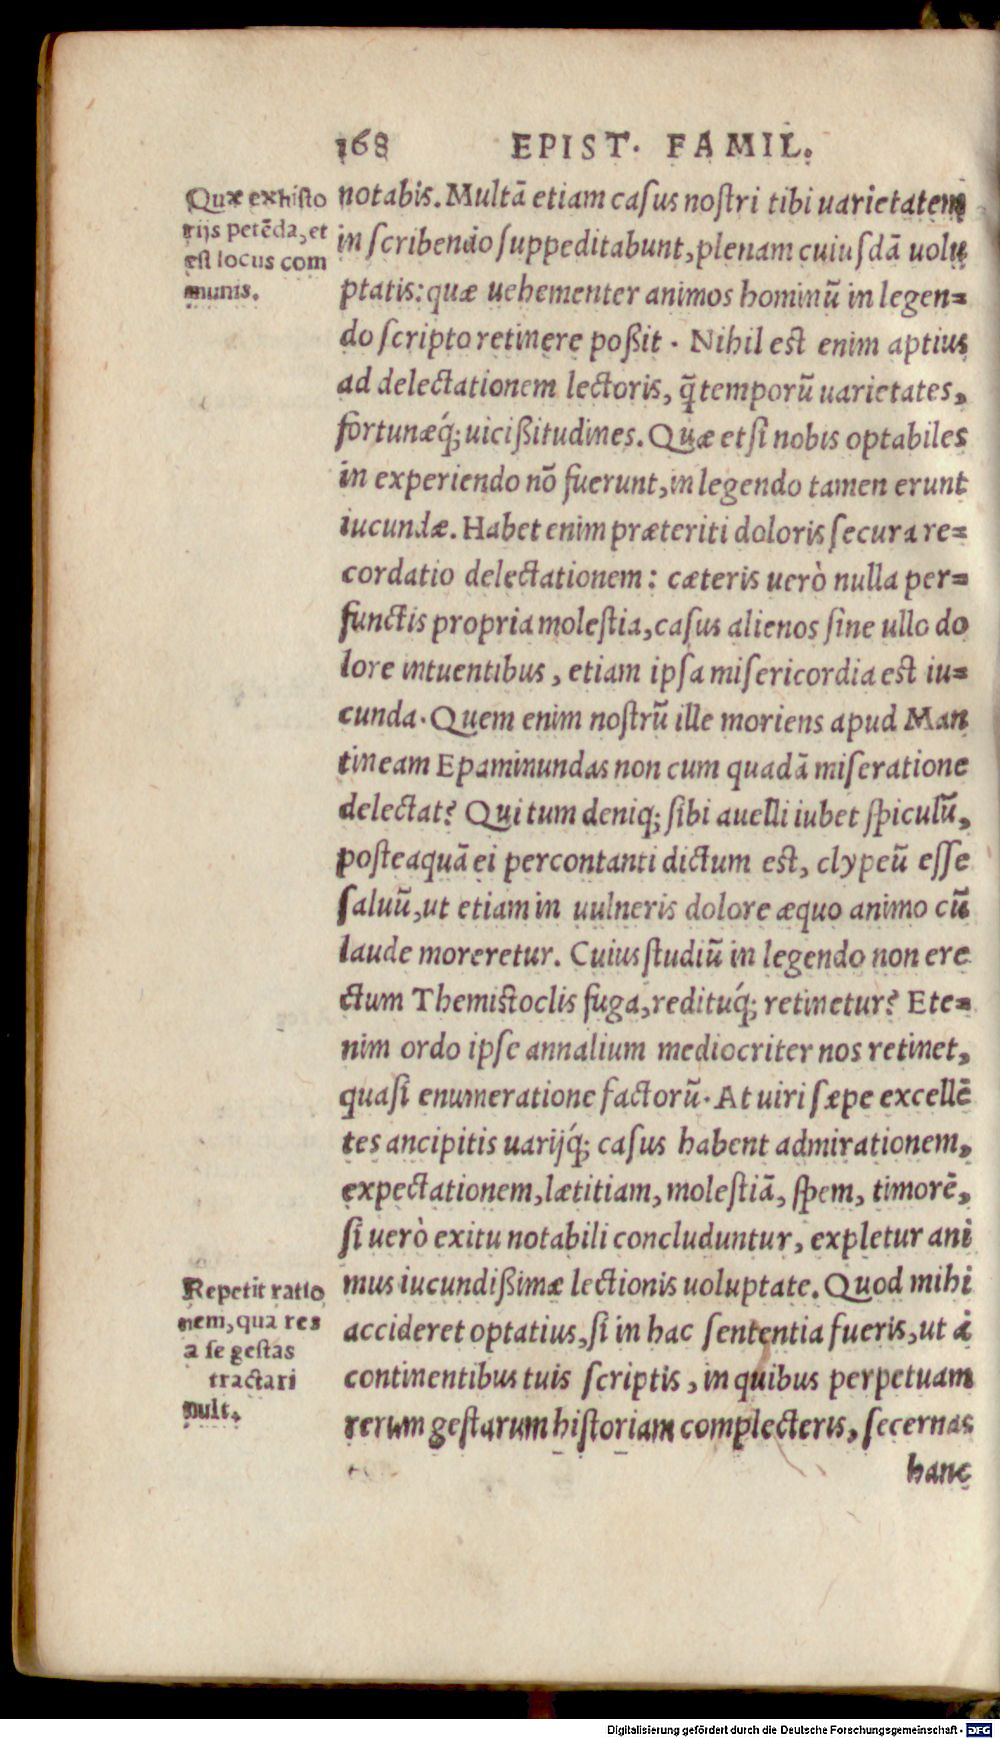 168 EPIST. FAMIL.
Quæ exhisto
rijs petēda, et
est locus com
munis.
notabis. Multā etiam casus nostri tibi uarietatem
in scribendo suppeditabunt, plenam cuiusdā uolu
ptatis: quæ uehementer animos hominū in legen=
do scripto retinere poßit. Nihil est enim aptius
ad delectationem lectoris, q̄ temporū uarietates,
fortunæq́; uicißitudines. Quæ etsi nobis optabiles
in experiendo nō fuerunt, in legendo tamen erunt
iucundæ. Habet enim præteriti doloris secura re=
cordatio delectationem: cæteris uerò nulla per=
functis propria molestia, casus alienos sine ullo do
lore intuentibus, etiam ipsa misericordia est iu=
cunda. Quem enim nostrū ille moriens apud Man
tineam Epaminundas non cum quadā miseratione
delectat? Qui tum deniq; sibi auelli iubet spiculū,
posteaquā ei percontanti dictum est, clypeū esse
saluū, ut etiam in uulneris dolore æquo animo cū
laude moreretur. Cuius studiū in legendo non ere
ctum Themistoclis fuga, redituq́; retinetur? Ete=
nim ordo ipse annalium mediocriter nos retinet,
quasi enumeratione factorū. At uiri sæpe excellē
tes ancipitis uarijq́; casus habent admirationem,
expectationem, lætitiam, molestiā, spem, timorē,
si uerò exitu notabili concluduntur, expletur ani
mus iucundißimæ lectionis uoluptate. Quod mihi
accideret optatius, si in hac sententia fueris, ut à
continentibus tuis scriptis, in quibus perpetuam
rerum gestarum historiam complecteris, secernas
hanc
Repetit ratio
nem, qua res
a se gestas
tractari
uult.
Digitalisierung gefördert durch die Deutsche Forschungsgemeinschaft - DFG